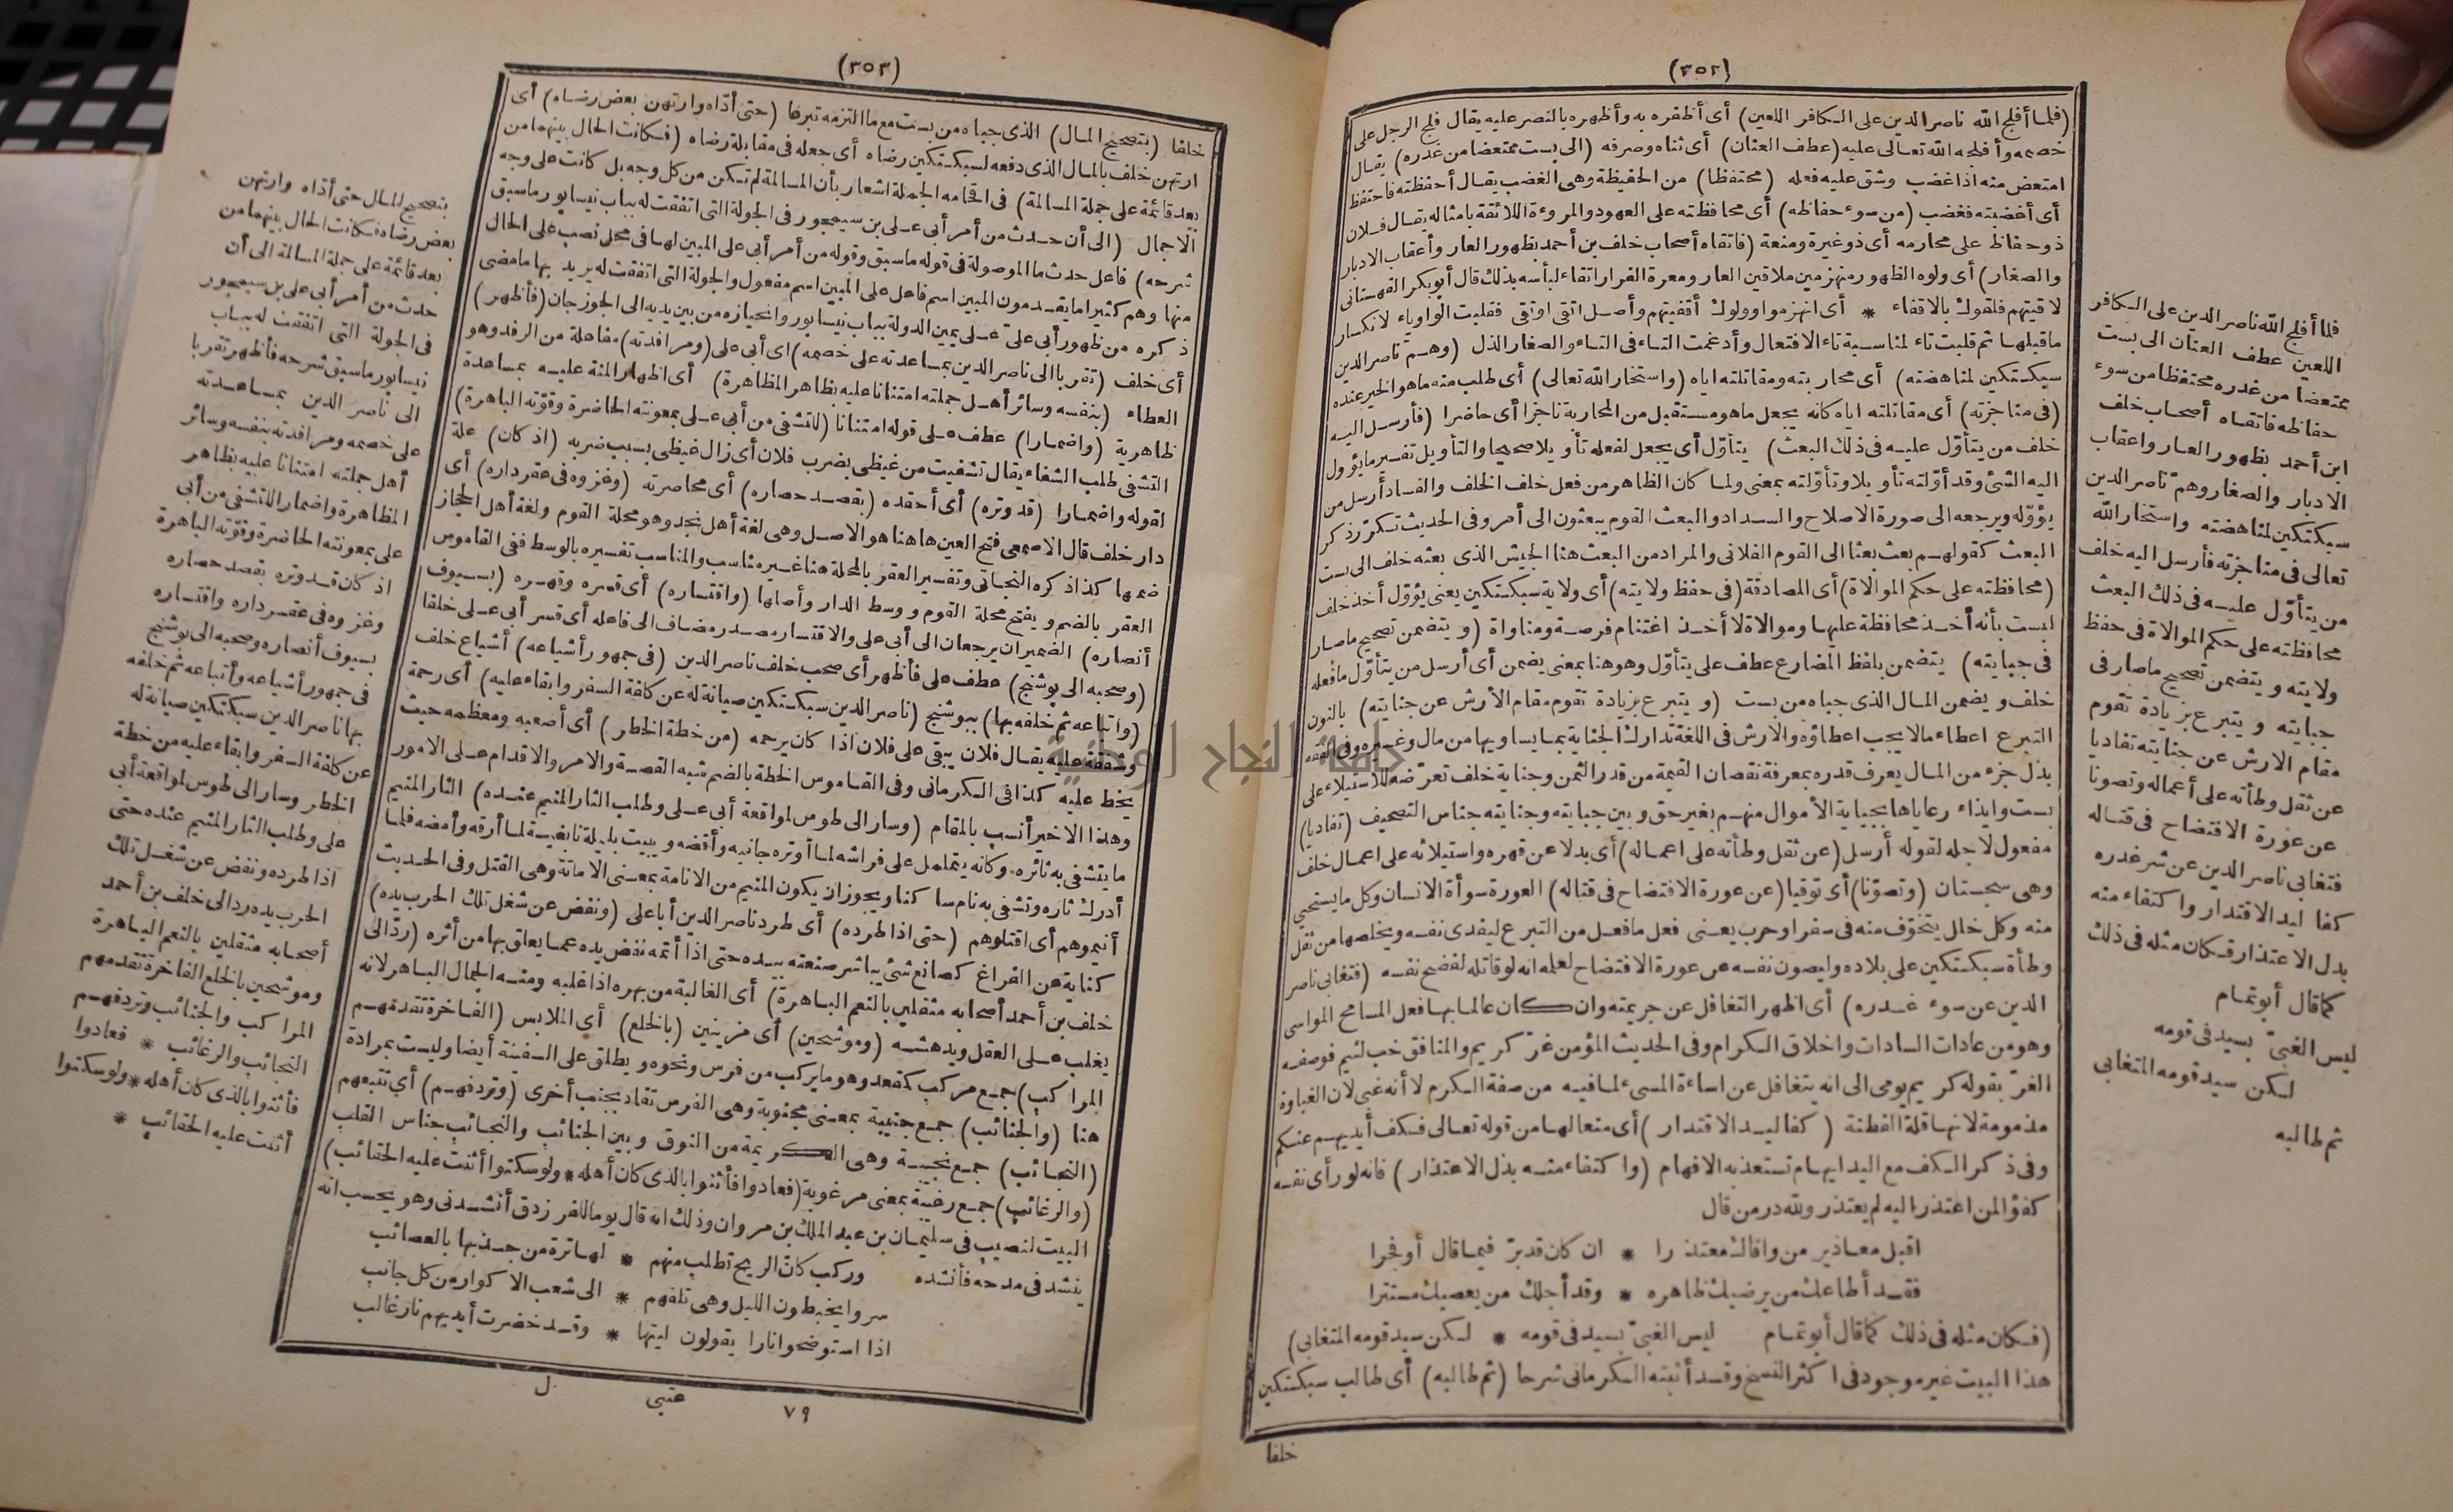 (٣٥٢)
(فلما أفلج الله ناصر الدين على الكافر اللعين) أى أظفره به وأظهره بالنصر عليه يقال فلج الرجل على
خصمه وأفلجه الله تعالى عليه (عطف العنان) أى ثناه وصرفه (الى بست ممتعضا من غدره) يقال
امتعض منه اذا غضب وشق عليه فعله (محتفظا) من الحفيظة وهى الغضب يقال أحفظته فاحتفظ
أى أغضبته فغضب (من سوء حفاظه) أى محافظته على العهود والمروءة اللائقة بامثاله يقال فلان
ذو حفاظ على محارمه أى ذو غيرة ومنعة (فاتقاه أصحاب خلف بن أحمد بظهور العار وأعقاب الادبار
والصغار) أى ولوه الظهور منهزمين ملاقين العار ومعرة الفرار اتقاء لبأسه بذلك قال أبو بكر القهستانى
لاقيتهم فلقوك بالاقفاء * أى انهزموا وولوك أقفيتهم وأصل اتقى اوتقى فقلبت الواو ياء لانكسار
ماقبلها ثم قلبت تاء لمناسبة تاء الافتعال وأدغمت التاء فى التاء والصغار الذل (وهم ناصر الدين
سبكتكين لمناهضته) أى محاربته ومقاتلته اياه (واستخار الله تعالى) أى طلب منه ماهو الخير عنده
(فى مناجزته) أى مقاتلته اياه كانه يجعل ماهو مستقبل من المحاربة ناجزا أى حاضرا (فأرسل اليه
خلف من يتأول عليه فى ذلك البعث) يتأول أى يجعل لفعله تأويلا صحيحا والتأويل تفسير ما يؤول
اليه الشئ وقد أوّلته تأويلا وتأوّلته بمعنى ولما كان الظاهر من فعل خلف الخلف والفساد أرسل من
يؤوّله ويرجعه الى صورة الاصلاح والسداد والبعث القوم يبعثون الى أمر وفى الحديث تكرّر ذكر
البعث كقولهم بعث بعثا الى القوم الفلانى والمراد من البعث هنا الجيش الذى بعثه خلف الى بست
(محافظته على حكم الموالاة) أى المصادقة (فى حفظ ولايته) أى ولاية سبكتكين يعنى يؤوّل أخذ خلف
لبست بأنه أخذ محافظة عليها وموالاة لا أخذ اغتنام فرصة ومناواة (ويتضمن تصحيح ماصار
فى جبايته) يتضمن بلفظ المضارع عطف على يتأوّل وهو هنا بمعنى يضمن أى أرسل من يتأوّل مافعله
خلف ويضمن المال الذى جباه من بست (ويتبرع بزيادة تقوم مقام الأرش عن جنايته) بالنون
التبرع اعطاء مالا يجب اعطاؤه والارش فى اللغة تدارك الجناية بما يساويها من مال وغيره وفى الفقه
بذل جزء من المال يعرف قدره بمعرفة نقصان القيمة من قدر الثمن وجناية خلف تعرّضه للاستيلاء على
بست وايذاء رعاياها بجباية الأموال منهم بغير حق وبين جبايته وجنايته جناس التصحيف (تفاديا)
مفعول لاجله لقوله أرسل (عن ثقل وطأته على اعماله) أى بدلا عن قهره واستيلائه على اعمال خلف
وهى سجستان (وتصوّنا) أى توقيا (عن عورة الافتضاح فى قتاله) العورة سوأة الانسان وكل ما يستحيى
منه وكل خلل يتخوّف منه فى سفر أو حرب يعنى فعل مافعل من التبرع ليفدى نفسه ويخلصها من ثقل
وطأة سبكتكين على بلاده وليصون نفسه عن عورة الافتضاح لعله انه لو قاتله لفضح نفسه (فتغابى ناصر
الدين عن سوء غدره) أى اظهر التغافل عن جريمته وان كان عالما بها فعل المسامح المواسى
وهو من عادات السادات واخلاق الكرام وفى الحديث المؤمن غرّ كريم والمنافق خب لئيم فوصفه
الغرّ بقوله كريم يومى الى انه يتغافل عن اساءة المسىء لما فيه من صفة الكرم لا أنه غبى لان الغباوة
مذمومة لانها قلة الفطنة (كفا ليد الاقتدار) أى منعا لها من قوله تعالى فكف أيديهم عنكم
وفى ذكر الكف مع اليد ايهام تستعذبه الافهام (واكتفاء منه بذل الاعتذار) فانه لو رأى نفسه
كفؤا لمن اعتذر اليه لم يعتذر ولله در من قال
اقبل معاذير من وافاك معتذرا * ان كان قد برّ فيما قال أو فجرا
فقد أطاعك من يرضيك ظاهره * وقد أجلك من يعصيك مستترا
(فكان مثله فى ذلك كما قال أبو تمام ليس الغبىّ بسيد فى قومه * لكن سيد قومه المتغابى)
هذا البيت غير موجود فى اكثر النسخ وقد أثبته الكرمانى شرحا (ثم طالبه) أى طالب سبكتكين
خلفا
فلما أفلج الله ناصر الدين على الكافر
اللعين عطف العنان الى بست
ممتعضا من غدره محتفظا من سوء
حفاظه فاتقاه أصحاب خلف
ابن أحمد بظهور العار واعقاب
الادبار والصغار وهمّ ناصر الدين
سبكتكين لمناهضته واستخار الله
تعالى فى مناجزته فأرسل اليه خلف
من يتأوّل عليه فى ذلك البعث
محافظته على حكم الموالاة فى حفظ
ولايته ويتضمن تصحيح ماصار فى
جبايته ويتبرع بزيادة تقوم
مقام الارش عن جنايته تفاديا
عن ثقل وطأته على أعماله وتصونا
عن عورة الافتضاح فى قتاله
فتغابى ناصر الدين عن شر غدره
كفا ليد الاقتدار واكتفاء منه
بذل الاعتذار فكان مثله فى ذلك
كما قال أبو تمام
ليس الغبىّ بسيد فى قومه
لكن سيد قومه المتغابى
ثم طالبه
(٣٥٣)
خلفا (بتصحيح المال) الذى جباه من بست مع ما التزمه تبرعا (حتى أدّاه وارتهن بعض رضاه) أى
ارتهن خلف بالمال الذى دفعه لسبكتكين رضاه أى جعله فى مقابلة رضاه (فكانت الحال بينهما من
بعد قائمة على جملة المسالمة) فى اقحامه الجملة اشعار بأن المسالمة لم تكن من كل وجه بل كانت على وجه
الاجمال (الى أن حدث من أمر أبى على بن سيمجور فى الجولة التى اتفقت له بباب نيسابور ماسبق
شرحه) فاعل حدث ما الموصولة فى قوله ماسبق وقوله من أمر أبى على المبين لها فى محل نصب على الحال
منها وهم كثيرا ما يقدمون المبين اسم فاعل على المبين اسم مفعول والجولة التى اتفقت له يريد بها مامضى
ذكره من ظهور أبى على على يمين الدولة بباب نيسابور وانحيازه من بين يديه الى الجوزجان (فأظهر)
أى خلف (تقربا الى ناصر الدين بمساعدته على خصمه) اى أبى على (ومرافدته) مفاعلة من الرفد وهو
العطاء (بنفسه وسائر أهل جملته امتنانا عليه بظاهر المظاهرة) أى اظهار المنة عليه بمساعدة
ظاهرية (واضمارا) عطف على قوله امتنانا (للتشفى من أبى على بمعونته الحاضرة وقوّته الباهرة)
التشفى طلب الشفاء يقال تشفيت من غيظى بضرب فلان أى زال غيظى بسبب ضربه (اذ كان) علة
لقوله واضمارا (قد وتره) أى أحقده (بقصد حصاره) أى محاصرته (وغزوه فى عقر داره) أى
دار خلف قال الاصمعى فتح العين هاهنا هو الاصل وهى لغة أهل نجد وهو محلة القوم ولغة أهل الحجاز
ضمها كذا ذكره النجاتى وتفسير العقر بالمحلة هنا غير مناسب والمناسب تفسيره بالوسط ففى القاموس
العقر بالضم ويفتح محلة القوم ووسط الدار وأصلها (واقتساره) أى قسره وقهره (بسيوف
أنصاره) الضميران يرجعان الى أبى على والاقتسار مصدر مضاف الى فاعله أى قسر أبى على خلفا
(وصحبه الى بوشنج) عطف على فأظهر أى صحب خلف ناصر الدين (فى جمهور أشياعه) أشياع خلف
(واتباعه ثم خلفه بها) ببوشنج (ناصر الدين سبكتكين صيانة له عن كلفة السفر وابقاء عليه) أى رحمة
وشفقة عليه يقال فلان يبقى على فلان اذا كان يرحمه (من خطة الخطر) أى أصعبه ومعظمه حيث
يخط عليه كذا فى الكرمانى وفى القاموس الخطة بالضم شبه القصة والامر والاقدام على الامور
وهذا الاخير أنسب بالمقام (وسار الى طوس لمواقعة أبى على وطلب الثار المنيم عنده) الثار المنيم
ما يتشفى به ثائره وكانه يتململ على فراشه لما أوتره جانيه وأقضه ويبيت بليلة نابغية لما أرقه وأمضه فلما
أدرك ثاره وتشفى به نام ساكنا ويجوز ان يكون المنيم من الانامة بمعنى الاماتة وهى القتل وفى الحديث
أنيموهم أى اقتلوهم (حتى اذا طرده) أى طرد ناصر الدين أبا على (ونفض عن شغل تلك الحرب يده)
كناية عن الفراغ كصانع شئ يباشر صنعته بيده حتى اذا أتمه نفض يده عما يعلق بها من أثره (ردّ الى
خلف بن أحمد أصحابه مثقلين بالنعم الباهرة) أى الغالبة من بهره اذا غلبه ومنه الجمال الباهر لانه
يغلب على العقل ويدهشه (وموشحين) أى مزينين (بالخلع) أى الملابس (الفاخرة تقدمهم
المراكب) جمع مركب كمقعد وهو ما يركب من فرس ونحوه ويطلق على السفينة أيضا وليست بمرادة
هنا (والجنائب) جمع جنيبة بمعنى مجنوبة وهى الفرس تقاد بجنب أخرى (وتردفهم) أى تتبعهم
(النجائب) جمع نجيبة وهى الكريمة من النوق وبين الجنائب والنجائب جناس القلب
(والرغائب) جمع رغيبة بمعنى مرغوبة (فعادوا فأثنوا بالذى كان أهله * ولو سكتوا أثنت عليه الحقائب)
البيت لنصيب فى سليمان بن عبد الملك بن مروان وذلك انه قال يوما للفرزدق أنشدنى وهو يحسب انه
ينشد فى مدحه فأنشده وركب كان الريح تطلب منهم * لها ترة من جذبها بالعصائب
سروا يخبطون الليل وهى تلفهم * الى شعب الاكوار من كل جانب
اذا استوضحوا نارا يقولون ليتها * وقد خضرت أيديهم نار غالب
٧٩ عتبى ل
بتصحيح المال حتى أدّاه وارتهن
بعض رضاه فكانت الحال بينهما من
بعد قائمة على جملة المسالمة الى أن
حدث من أمر أبى على بن سيمجور
فى الجولة التى اتفقت له بباب
نيسابور ماسبق شرحه فأظهر تقربا
الى ناصر الدين بمساعدته
على خصمه ومرافدته بنفسه وسائر
أهل جملته امتنانا عليه بظاهر
المظاهرة واضمارا للتشفى من أبى
على بمعونته الحاضرة وقوّته الباهرة
اذ كان قد وتره بقصد حصاره
وغزوه فى عقر داره واقتساره
بسيوف أنصاره وصحبه الى بوشنج
فى جمهور أشياعه وأتباعه ثم خلفه
بها ناصر الدين سبكتكين صيانة له
عن كلفة السفر وابقاء عليه من خطة
الخطر وسار الى طوس لمواقعة أبى
على وطلب الثار المنيم عنده حتى
اذا طرده ونفض عن شغل تلك
الحرب يده رد الى خلف بن أحمد
أصحابه مثقلين بالنعم الباهرة
وموشحين بالخلع الفاخرة تقدمهم
المراكب والجنائب وتردفهم
النجائب والرغائب * فعادوا
فأثنوا بالذى كان أهله * ولو سكتوا
أثنت عليه الحقائب *
جامعة النجاح الوطنية